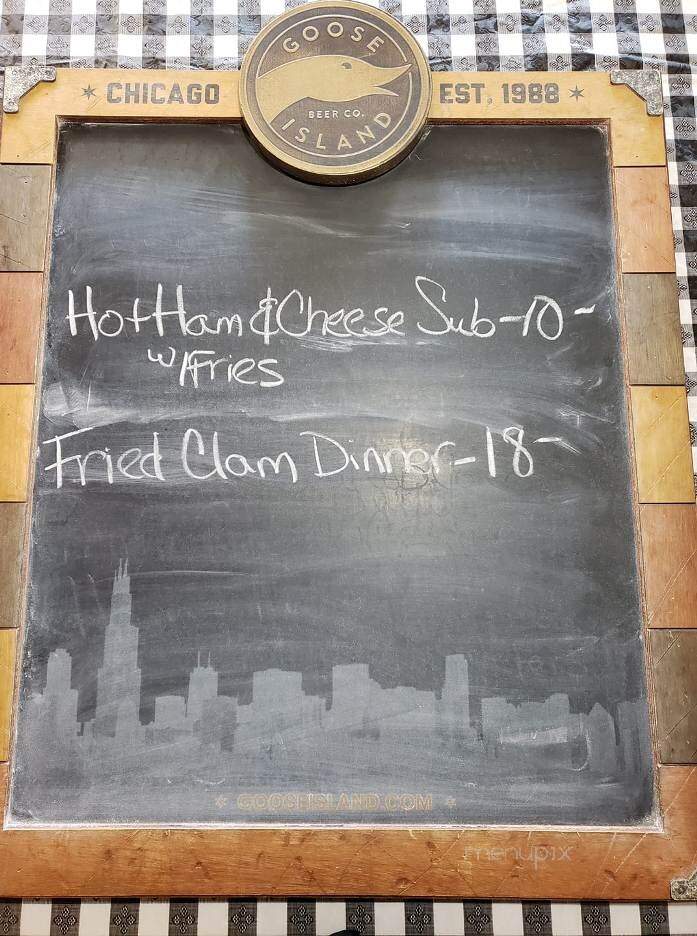 GOOSE
* CHICAGO
EST. 1988 *
BEER CO.
ISLAND
Hot Ham & Cheese Sub-10-
w/Fries
Fried Clam Dinner-18-
* GOOSEISLAND.COM *
menupix